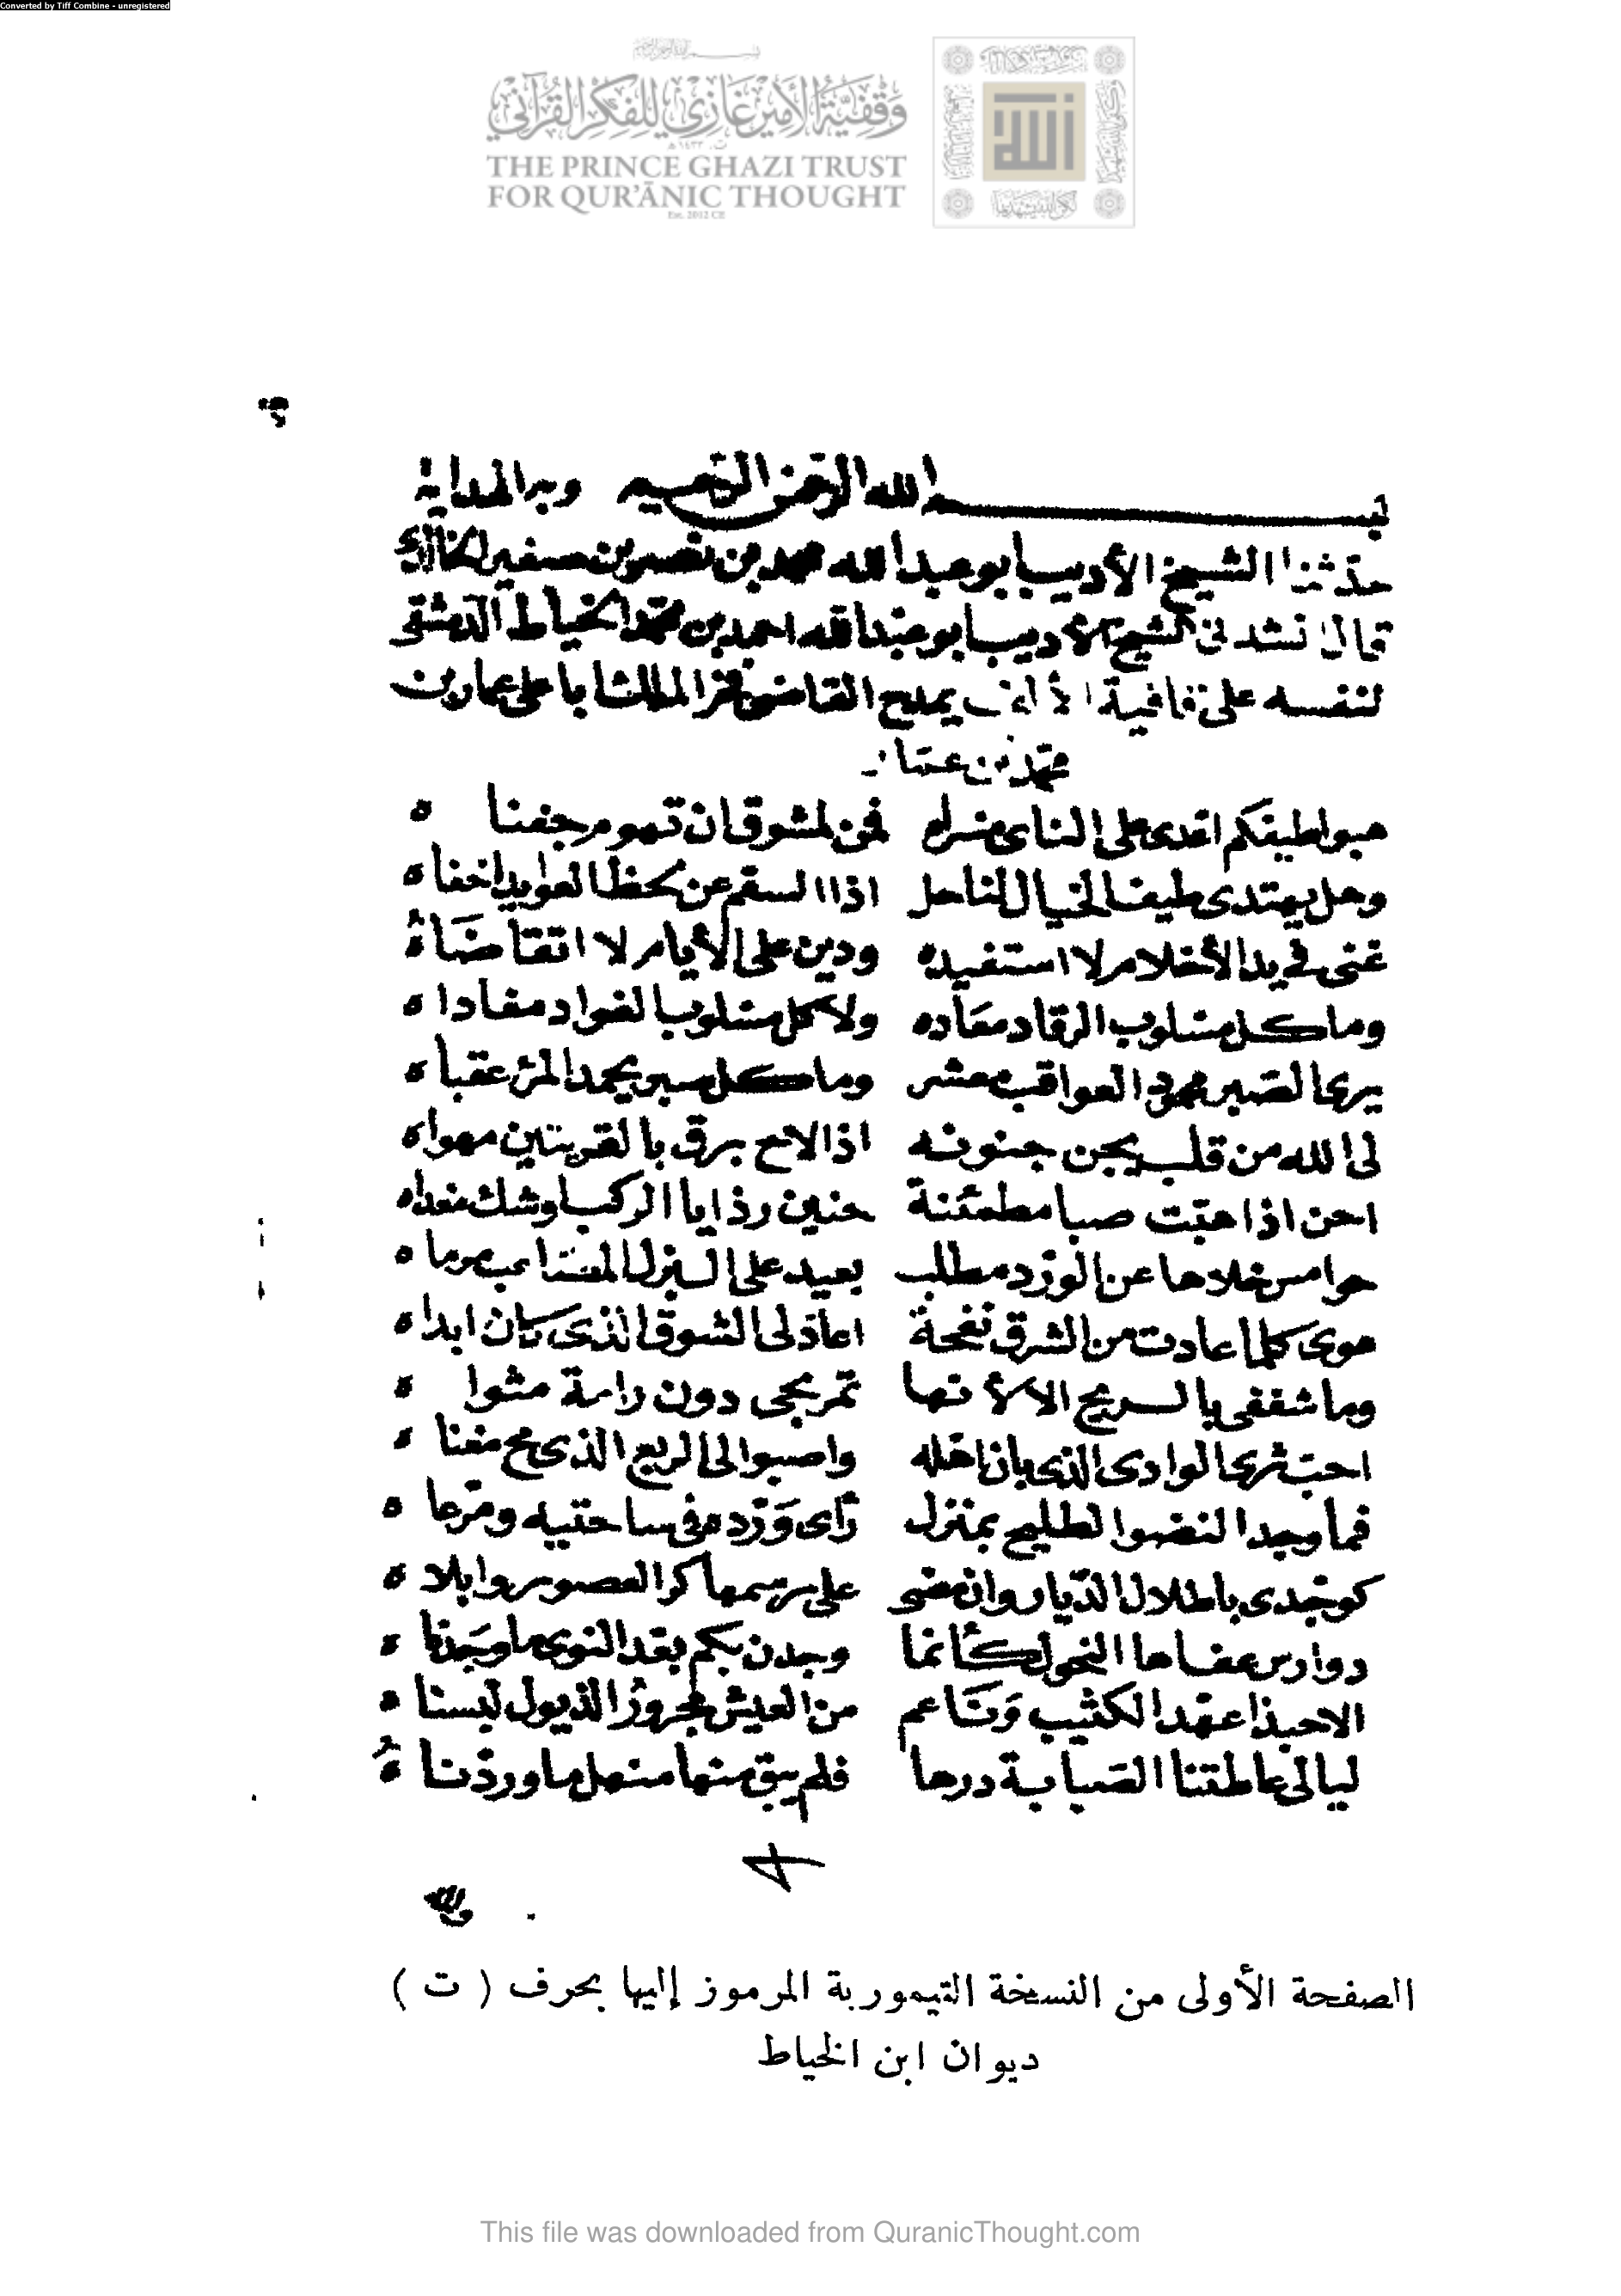 Converted by Tiff Combine - unregistered
وقفية الأمير غازي للفكر القرآني
THE PRINCE GHAZI TRUST
FOR QUR'ĀNIC THOUGHT
Est. 2012 CE
بسم الله الرحمن الرحيم وبه الهداية
حدثنا الشيخ الأديب ابو عبد الله محمد بن نصر بن صغير
قال انشدني الشيخ الأديب ابو عبد الله احمد بن محمد الخياط الدمشقى
لنفسه على قافية الألف يمدح القاضى فخر الملك ابا على عمار بن
محمد بن عمار
هبوا طيفكم اعدى على الناى مسراه فمن لمشوق ان تهوم جفناه
وهل يهتدى طيف الخيال لناحل اذا السقم عن لحظ العوايد اخفاه
غنى فى يد الأحلام لا استفيده ودين على الأيام لا اتقاضاه
وما كل مسلوب الرقاد معاده ولا كل مسلوب الفواد مفاداه
يرى الصبر محمود العواقب معشر وما كل صبر يحمد المرء عقباه
لى الله من قلب يجن جنونه اذا لاح برق بالقرينين مهواه
احن اذا هبت صبا مطمئنة حنين رذايا الركب وشك مغداه
خوامس خلاها عن الورد مطلب بعيد على البزل المصاعب مرماه
هوى كلما عادت من الشرق نفحة اعاد لى الشوق الذى كان ابداه
وما شغفى بالريح الا لأنها تمر بحى دون رامة مثواه
احب ثرى الوادى الذى بان اهله واصبوا الى الربع الذى مح مغناه
فما وجد النضو الطليح بمنزل رأى ورده فى ساحتيه ومرعاه
كوجدى باطلال الديار وان مضى على رسمها كر العصور وابلاه
دوارس عفاها النحول كأنما وجدن بكم بعد النوى ما وجدناه
الا حبذا عهد الكثيب وناعم من العيش مجرور الذيول لبسناه
ليالى عاطتنا الصبابة درها فلم يبق منها منهل ما وردناه
الصفحة الأولى من النسخة التيمورية المرموز إليها بحرف ( ت )
ديوان ابن الخياط
This file was downloaded from QuranicThought.com